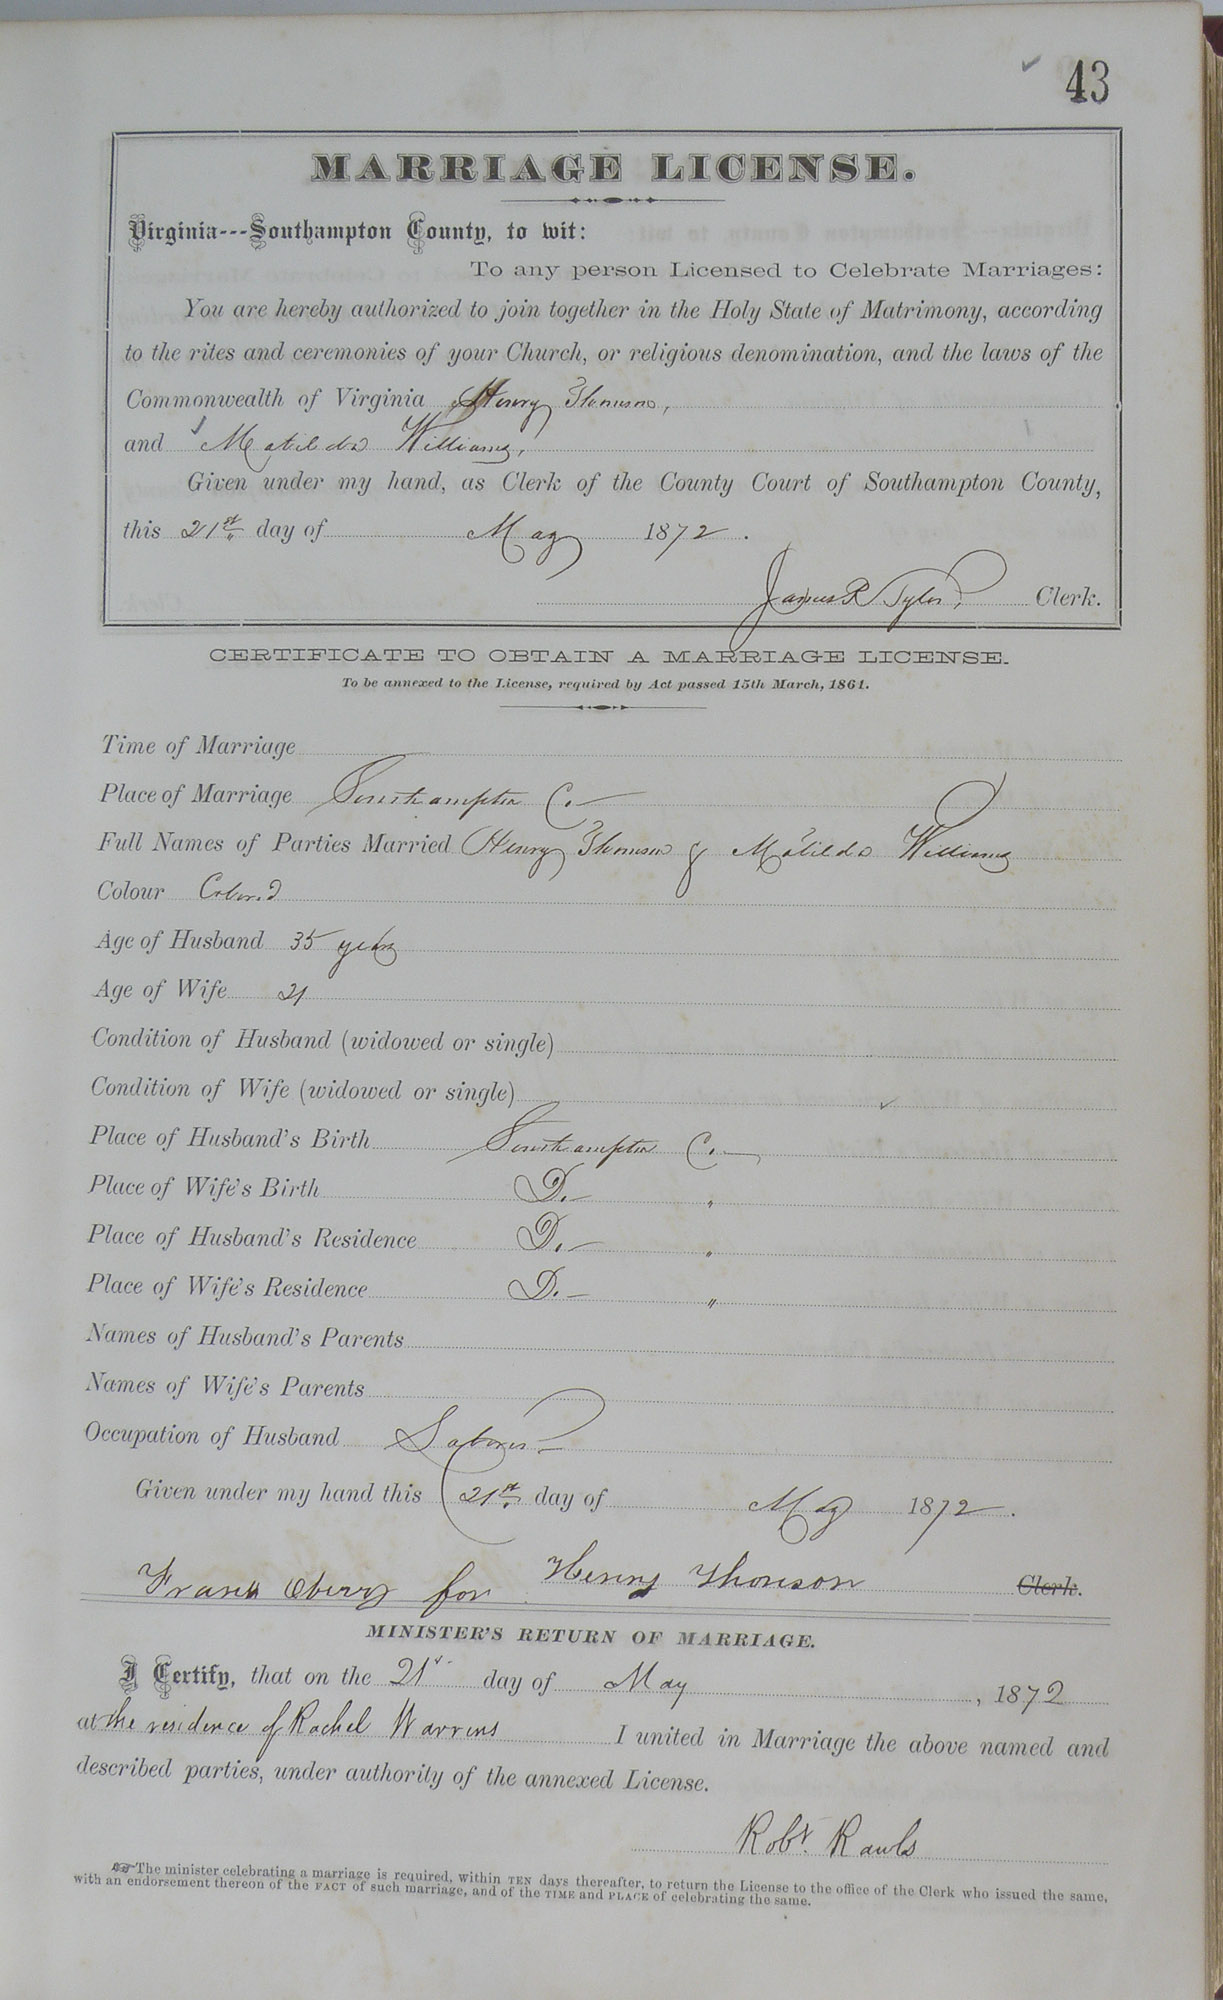 43
MARRIAGE LICENSE.
Virginia---Southampton County, to wit:
To any person Licensed to Celebrate Marriages:
You are hereby authorized to join together in the Holy State of Matrimony, according
to the rites and ceremonies of your Church, or religious denomination, and the laws of the
Commonwealth of Virginia Henry Thomson,
and Matilda Williams,
Given under my hand, as Clerk of the County Court of Southampton County,
this 21st day of May 1872.
James R Tyler, Clerk.
CERTIFICATE TO OBTAIN A MARRIAGE LICENSE.
To be annexed to the License, required by Act passed 15th March, 1861.
Time of Marriage
Place of Marriage Southampton Co.
Full Names of Parties Married Henry Thomson & Matilda Williams
Colour Colored
Age of Husband 35 years
Age of Wife 21
Condition of Husband (widowed or single)
Condition of Wife (widowed or single)
Place of Husband's Birth Southampton Co.
Place of Wife's Birth Do. "
Place of Husband's Residence Do. "
Place of Wife's Residence Do. "
Names of Husband's Parents
Names of Wife's Parents
Occupation of Husband Laborer
Given under my hand this 21st day of May 1872.
Frank for Henry Thomson Clerk.
MINISTER'S RETURN OF MARRIAGE.
I Certify, that on the 21st day of May, 1872
at the residence of Rachel Warrens I united in Marriage the above named and
described parties, under authority of the annexed License.
Robt. Rawls
The minister celebrating a marriage is required, within TEN days thereafter, to return the License to the office of the Clerk who issued the same,
with an endorsement thereon of the FACT of such marriage, and of the TIME and PLACE of celebrating the same.